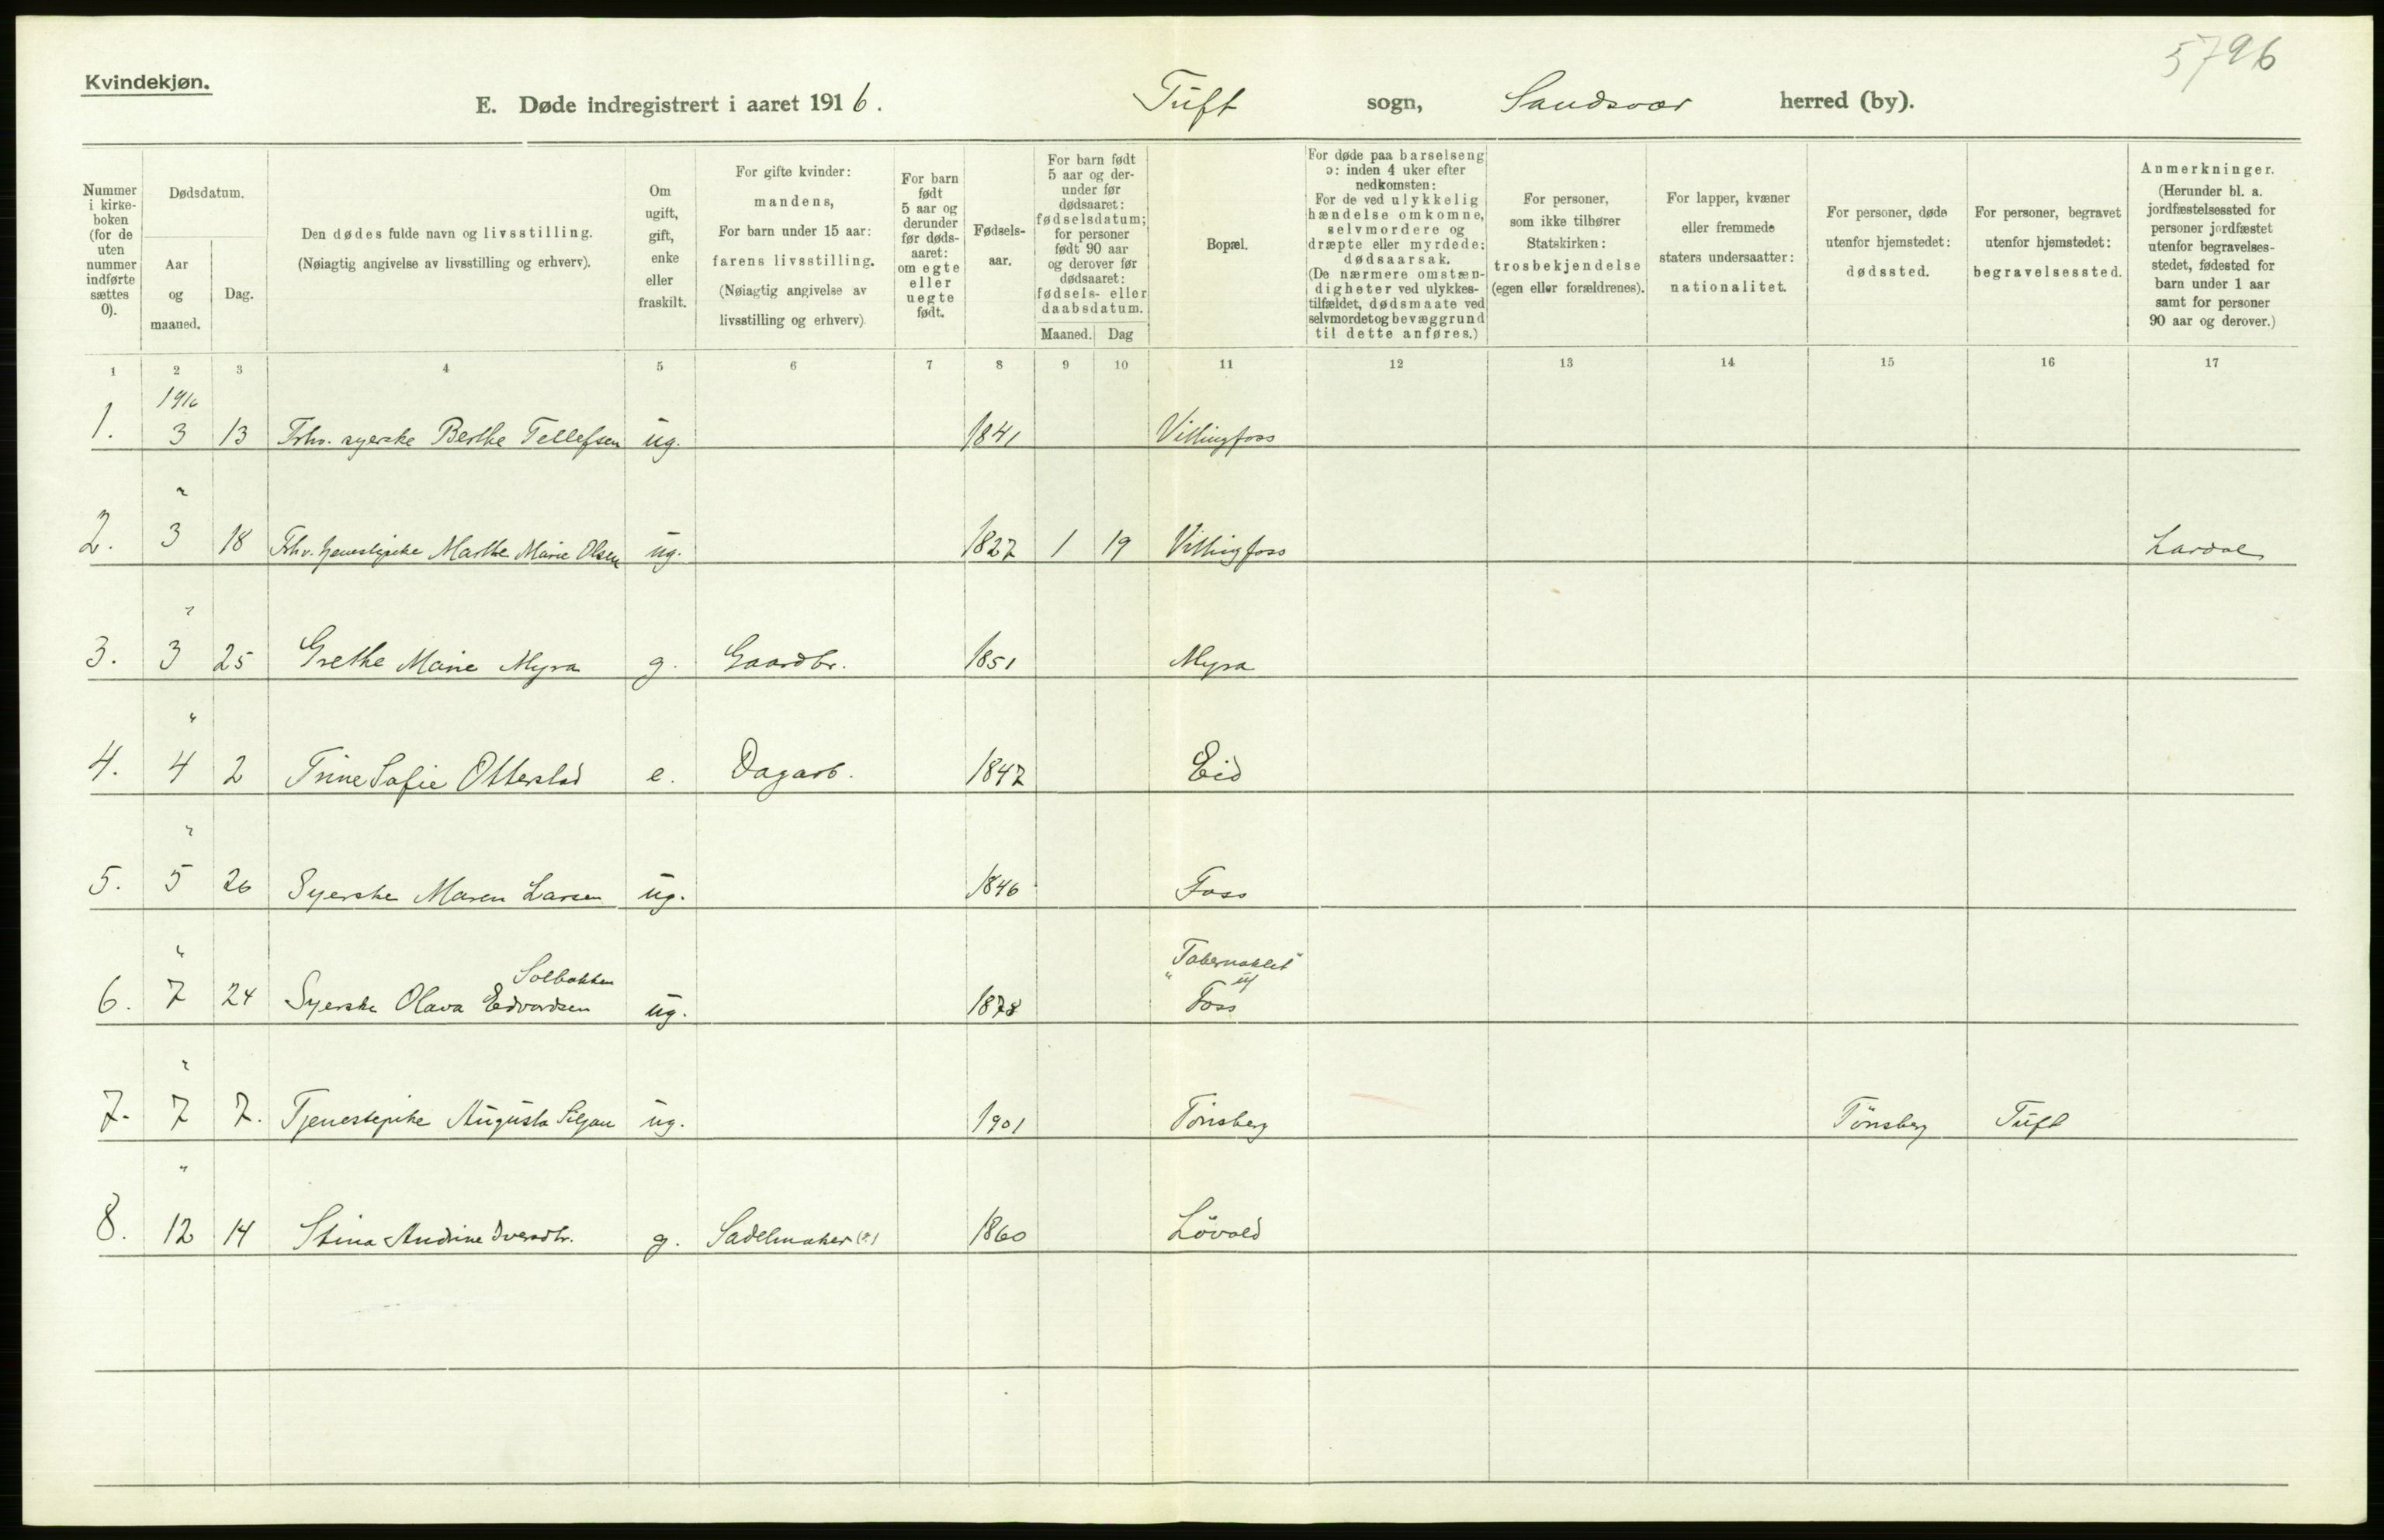 5796
Kvindekjøn.
E. Døde indregistrert i aaret 1916. Tuft sogn, Sandsvær herred (by).
Nummer i kirkeboken (for de uten nummer indførte sættes 0).
Dødsdatum.
Aar og maaned.
Dag.
Den dødes fulde navn og livsstilling.
(Nøiagtig angivelse av livsstilling og erhverv).
Om ugift, gift, enke eller fraskilt.
For gifte kvinder:
mandens,
For barn under 15 aar:
farens livsstilling.
(Nøiagtig angivelse av
livsstilling og erhverv)
For barn født 5 aar og derunder før dødsaaret: om egte eller uegte født.
Fødselsaar.
For barn født 5 aar og derunder før dødsaaret: fødselsdatum; for personer født 90 aar og derover før dødsaaret: fødsels- eller daabsdatum.
Maaned. Dag
Bopæl.
For døde paa barselseng
ɔ: inden 4 uker efter
nedkomsten:
For de ved ulykkelig
hændelse omkomne,
selvmordere og
dræpte eller myrdede:
dødsaarsak.
(De nærmere omstæn-
digheter ved ulykkes-
tilfældet, dødsmaate ved
selvmordet og bevæggrund
til dette anføres.)
For personer,
som ikke tilhører
Statskirken:
trosbekjendelse
(egen eller forældrenes).
For lapper, kvæner
eller fremmede
staters undersaatter:
nationalitet.
For personer, døde
utenfor hjemstedet:
dødssted.
For personer, begravet
utenfor hjemstedet:
begravelsessted.
Anmerkninger.
(Herunder bl. a.
jordfæstelsessted for
personer jordfæstet
utenfor begravelses-
stedet, fødested for
barn under 1 aar
samt for personer
90 aar og derover.)
1 2 3 4 5 6 7 8 9 10 11 12 13 14 15 16 17
1916
1. 3 13 Fhv. syerske Berthe Tellefsen ug. 1841 Villingfoss
"
2. 3 18 Fhv. tjenestepike Marthe Marie Olsen ug. 1827 1 19 Villingfoss Lardal
"
3. 3 25 Grethe Marie Myra g. Gaardbr. 1851 Myra
"
4. 4 2 Trine Sofie Otterstad e. Dagarb. 1847 Eid
"
5. 5 26 Syerske Maren Larsen ug. 1846 Foss
" Solbakken "Tabernaklet"
6. 7 24 Syerske Olava Edvardsen ug. 1878 Foss
"
7. 7 7. Tjenestepike Augusta Siljan ug. 1901 Tönsberg Tönsberg Tuft
"
8. 12 14 Stina Andrine g. Sadelmaker (?) 1860 Lövold